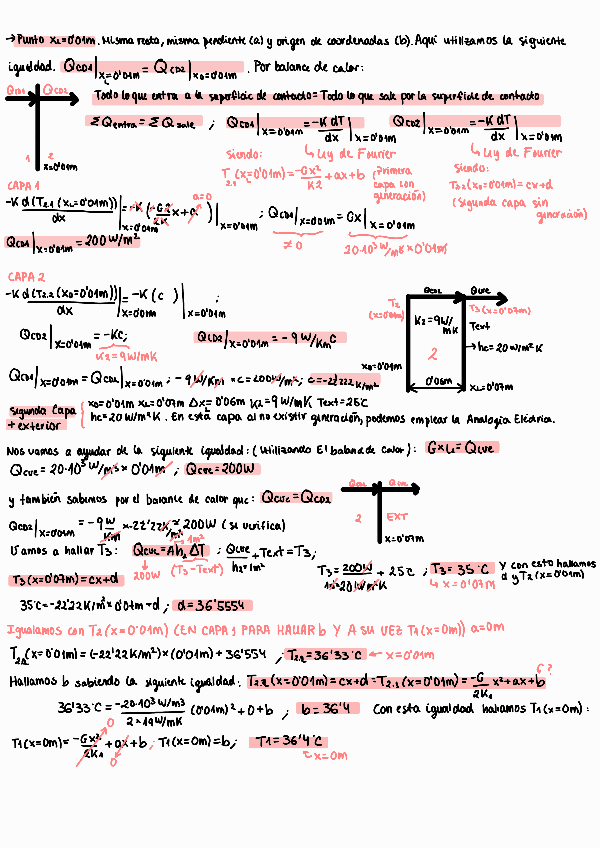 → Punto xL=0'01m. Misma recta, misma pendiente (a) y origen de coordenadas (b). Aquí utilizamos la siguiente
igualdad. QCD1|x=0'01m = QCD2|x0=0'01m. Por balance de calor:
QCD1 QCD2 Todo lo que entra a la superficie de contacto = Todo lo que sale por la superficie de contacto
ΣQentra = ΣQsale ; QCD1|x=0'01m = -K dT/dx|x=0'01m QCD2|x=0'01m = -K dT/dx|x=0'01m
1 2 x=0'01m
siendo: ↳ Ley de Fourier siendo: ↳ Ley de Fourier
T2.1(x=0'01m) = -Gx²/K2 + ax+b (Primera capa con generación)
T2.2(x0=0'01m) = cx+d (Segunda capa sin generación)
CAPA 1
-K d(T2.1(xL=0'01m))/dx|x=0'01m = -K(-G2/2K x+a)|x=0'01m ; QCD1|x=0'01m = Gx|x=0'01m
a=0
≠0 20·10³ W/m³ x 0'01m
QCD1|x=0'01m = 200 W/m²
CAPA 2
-K d(T2.2(x0=0'01m))/dx|x=0'01m = -K(c)|x=0'01m ;
QCD2|x=0'01m = -Kc; QCD2|x=0'01m = -9 W/Km C
K2=9W/mK
QCD1|x=0'01m = QCD2|x=0'01m ; -9 W/Km x c = 200W/m² ; c=-22'222 K/m²
T2 (x=0'01m) QCD2 QCVE T3 (x=0'07m)
K2=9W/mK Text
2 → hc=20 W/m²K
x0=0'01m 0'06m xL=0'07m
Segunda Capa + exterior { x0=0'01m xL=0'07m Δx=0'06m K2=9W/mK Text=25ºC
hc=20 W/m²K. En esta capa al no existir generación, podemos emplear la Analogía Eléctrica.
Nos vamos a ayudar de la siguiente igualdad: (Utilizando El balance de calor): G×L = QCVE
QCVE = 20·10³ W/m³ x 0'01m ; QCVE = 200W
y también sabemos por el balance de calor que: QCVE = QCD2
QCVE QCVE
2 EXT
x=0'07m
QCD2|x=0'01m = -9 W/Km x -22'22 K/m² = 200W (se verifica)
1m²
Vamos a hallar T3: QCVE = Ah2 ΔT ; QCVE/h2·1m² + Text = T3;
200W (T3-Text)
T3 = 200W/1m²·20W/m²K + 25ºC ; T3 = 35ºC Y con esto hallamos d y T2(x=0'01m)
↳ x=0'07m
T3(x=0'07m) = cx+d
35ºC = -22'22 K/m² x 0'07m + d ; d = 36'5554
Igualamos con T2(x=0'01m) (EN CAPA 1 PARA HALLAR b Y A SU VEZ T1(x=0m)) a=0m
T2.2(x=0'01m) = (-22'22 K/m²) x (0'01m) + 36'554 ; T2.2 = 36'33ºC ← x=0'01m
Hallamos b sabiendo la siguiente igualdad: T2.2(x=0'01m) = cx+d = T2.1(x=0'01m) = -G/2K1 x²+ax+b
b?
36'33ºC = -20·10³ W/m³/2x19W/mK (0'01m)² + 0 + b ; b = 36'4 Con esta igualdad hallamos T1(x=0m):
T1(x=0m) = -Gx²/2K1 + ax + b ; T1(x=0m) = b ; T1 = 36'4ºC
0 0 x=0m